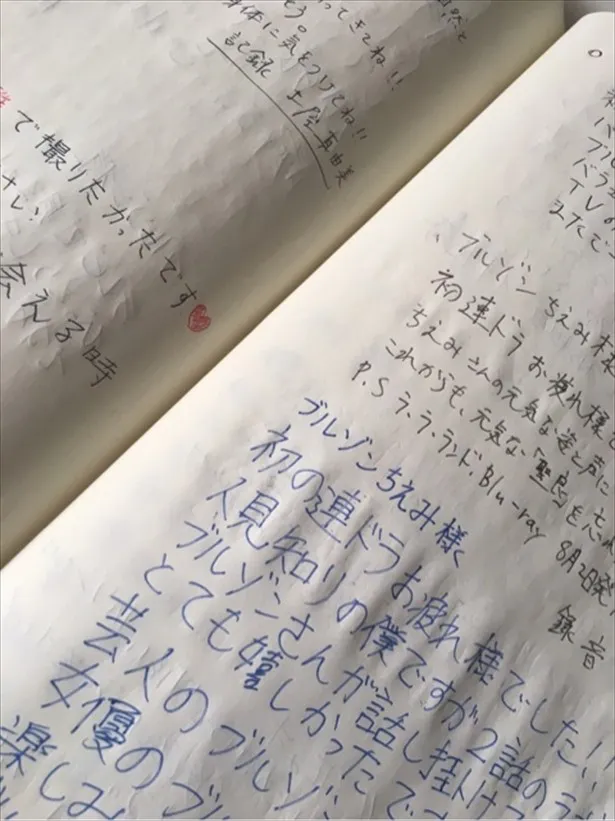 ってきてね!!
身体に気をつけてね!!
記録 土屋真由美
で撮りたかったです
さい
会える時
TVの
またどこ
ブルゾンちえみ様
初連ドラお疲れ様
ちえみさんの元気な姿と声に
これからも、元気な
P.S ラ・ラ・ランド、Blu-ray 8月2日発
録音
ブルゾンちえみ様
初の連ドラお疲れ様でした!!
人見知りの僕ですが2話のラ
ブルゾンさんが話し掛けっ
とても嬉しかったで
芸人のブルゾン
女優のブル
楽しみ